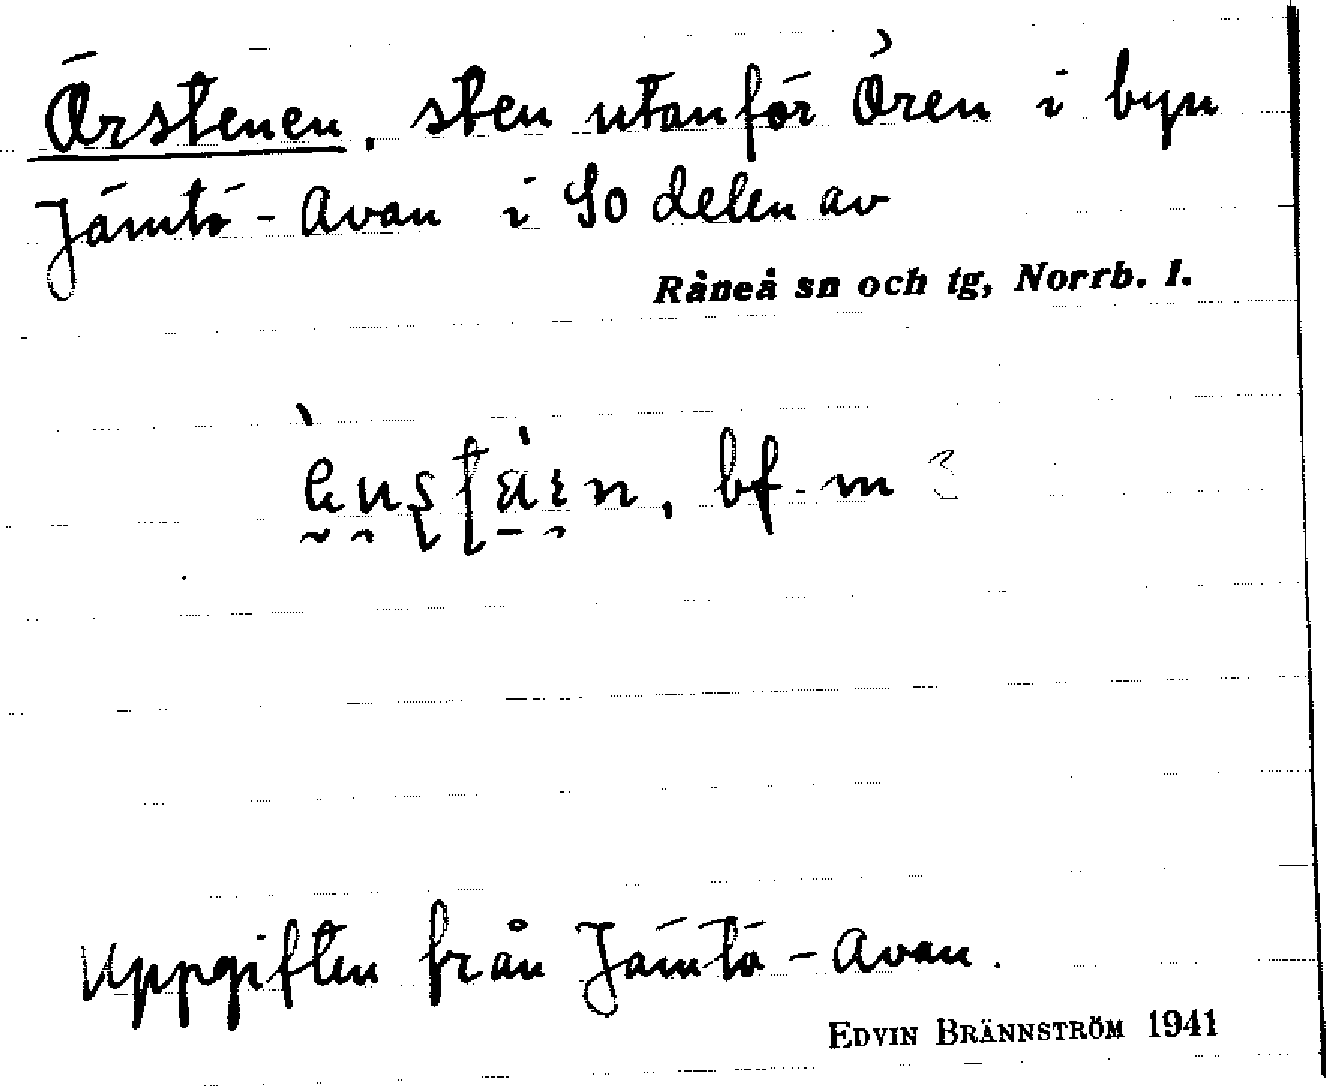 Örstenen, sten utanför Ören i byn
Jämtö-Avan i So delen av
Råneå sn och tg, Norrb. l.
bf. m
Uppgiften från Jämtö-Avan.
EDVIN BRÄNNSTRÖM 1941